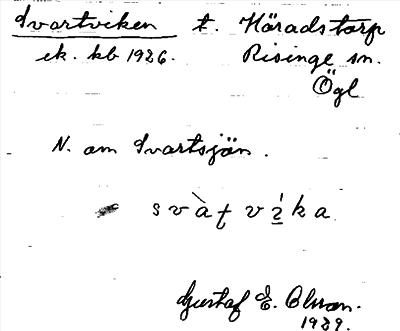 Svartviken t. Häradstorp
ek. kb 1926. Risinge sn.
Ögl
N. om Svartsjön.
svàt vı́ka
Gustaf E. Olsson.
1929.